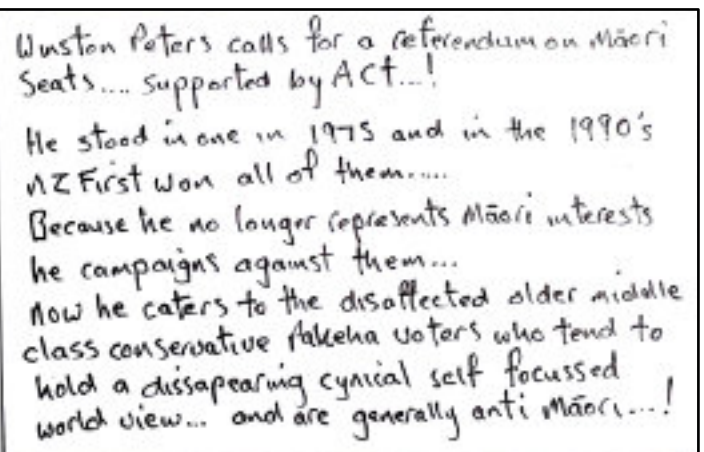 Winston Peters calls for a referendum on Māori
Seats.... supported by ACT...!
He stood in one in 1975 and in the 1990's
NZ First won all of them.....
Because he no longer represents Māori interests
he campaigns against them...
now he caters to the disaffected older middle
class conservative Pakeha voters who tend to
hold a dissapearing cynical self focussed
world view... and are generally anti Māori...!